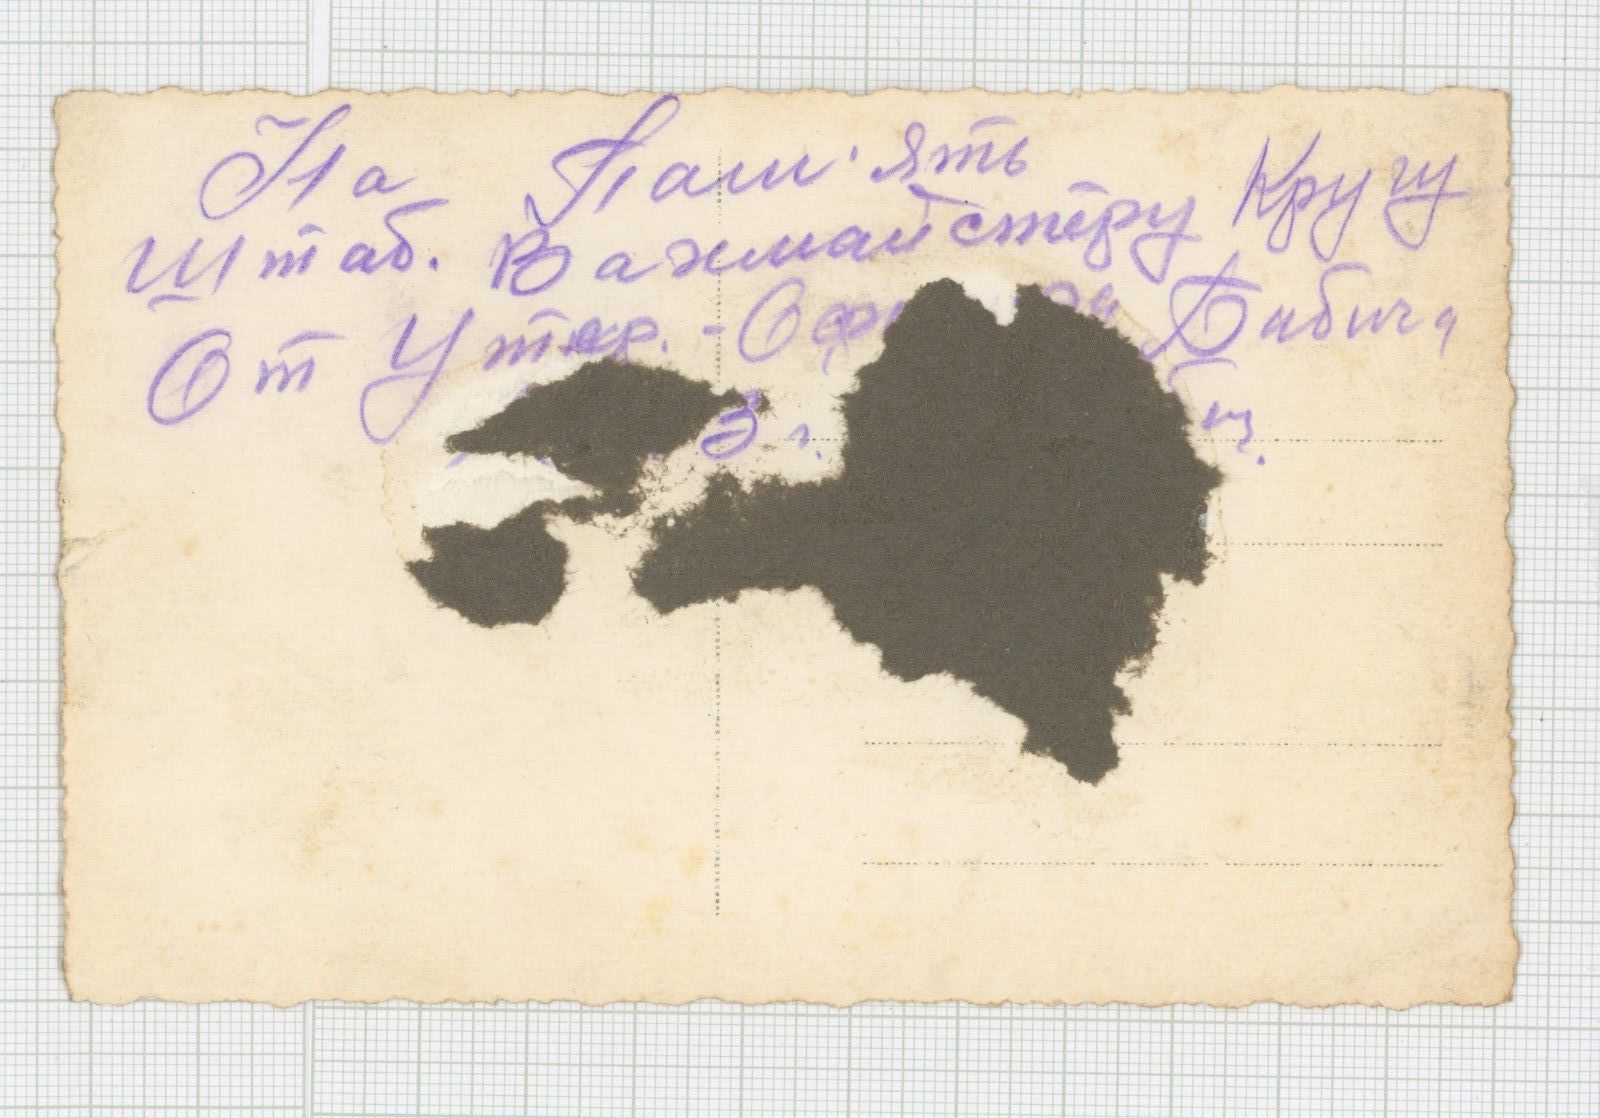 На Пам'ять
Штаб. Вахмайстеру Кругу
От Унтер.-Офи Бабича
3 г.